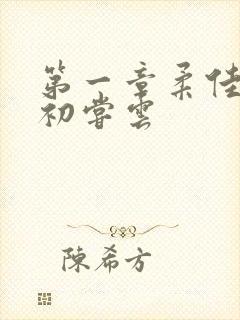 第一章柔佳
初嘗雲
陳希方